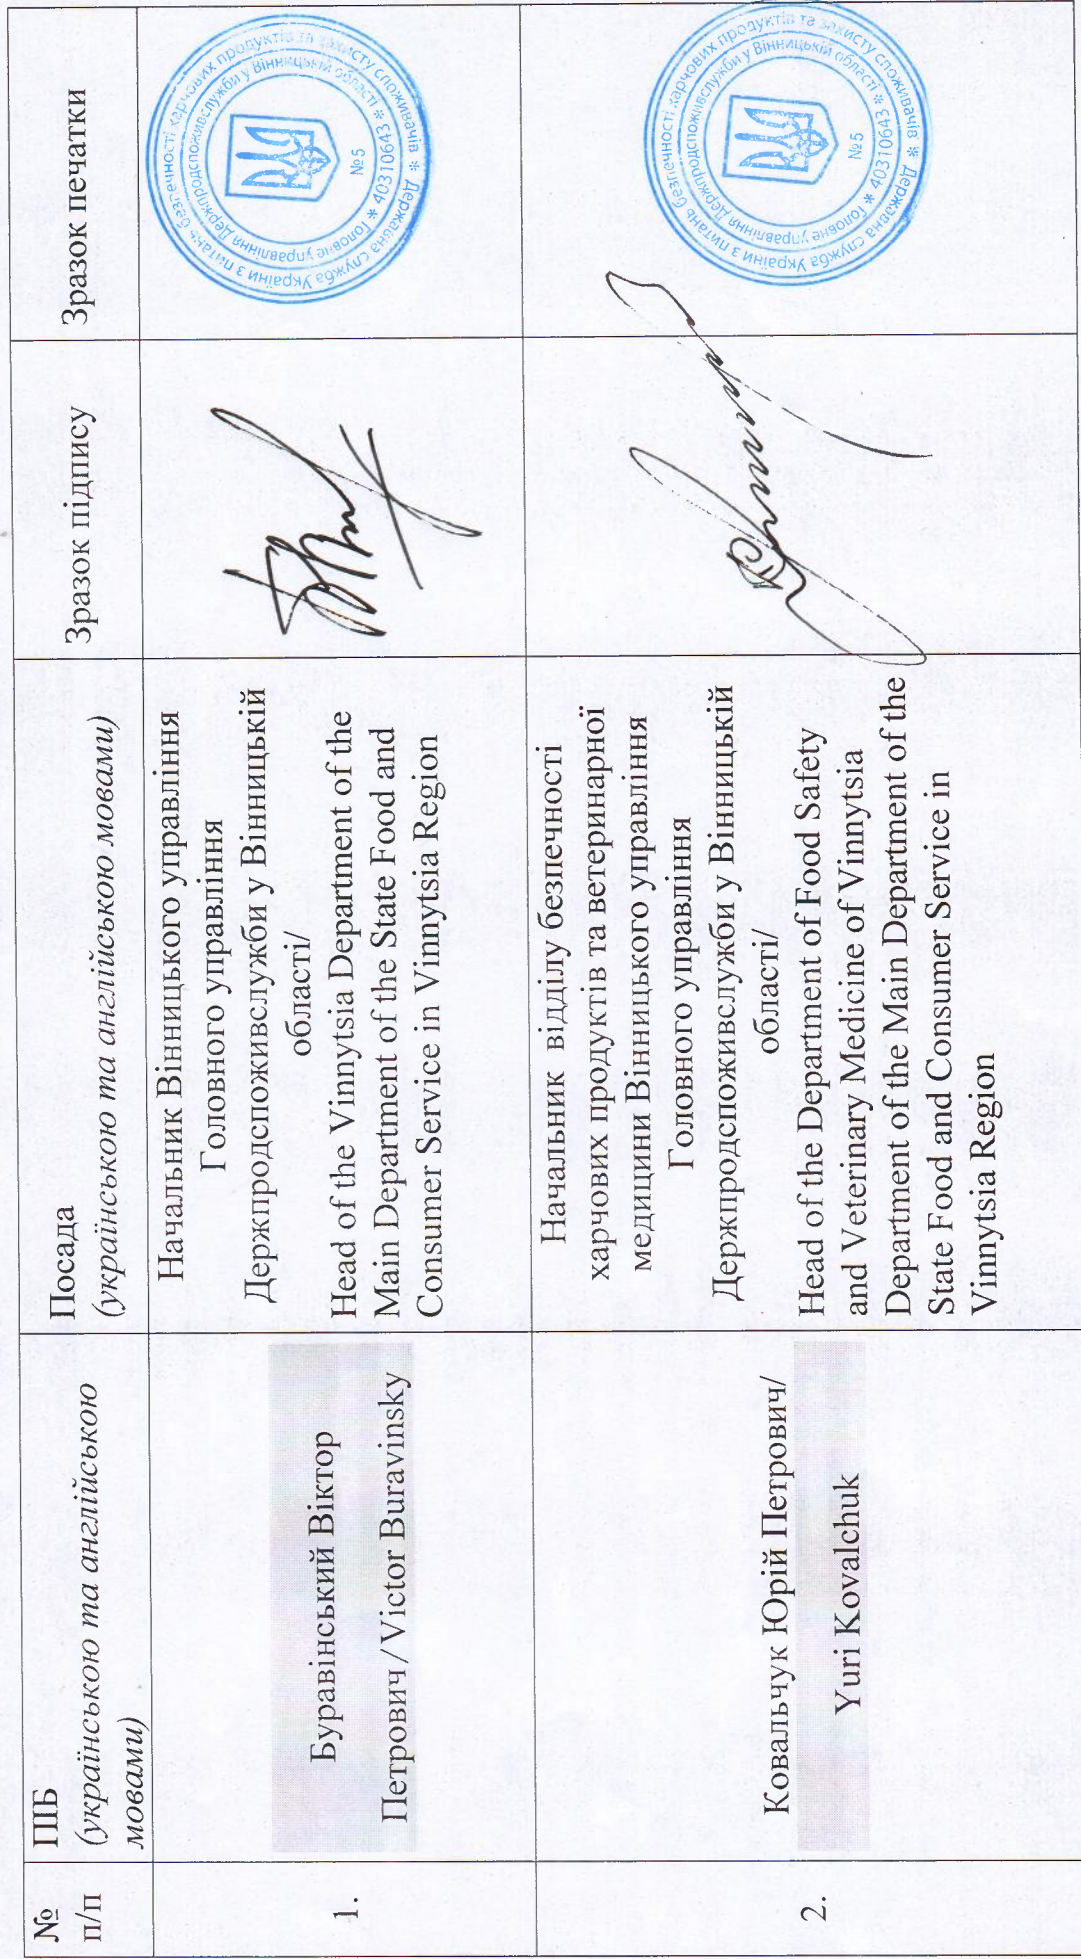 №
п/п
ПІБ
(українською та англійською
мовами)
Посада
(українською та англійською мовами)
Зразок підпису
Зразок печатки
1.
Буравінський Віктор
Петрович / Victor Buravinsky
Начальник Вінницького управління
Головного управління
Держпродспоживслужби у Вінницькій
області/
Head of the Vinnytsia Department of the
Main Department of the State Food and
Consumer Service in Vinnytsia Region
Державна служба України з питань безпечності харчових продуктів та захисту споживачів *
Головне управління Держпродспоживслужби у Вінницькій області * 40310643 *
№5
2.
Ковальчук Юрій Петрович/
Yuri Kovalchuk
Начальник відділу безпечності
харчових продуктів та ветеринарної
медицини Вінницького управління
Головного управління
Держпродспоживслужби у Вінницькій
області/
Head of the Department of Food Safety
and Veterinary Medicine of Vinnytsia
Department of the Main Department of the
State Food and Consumer Service in
Vinnytsia Region
Державна служба України з питань безпечності харчових продуктів та захисту споживачів *
Головне управління Держпродспоживслужби у Вінницькій області * 40310643 *
№5